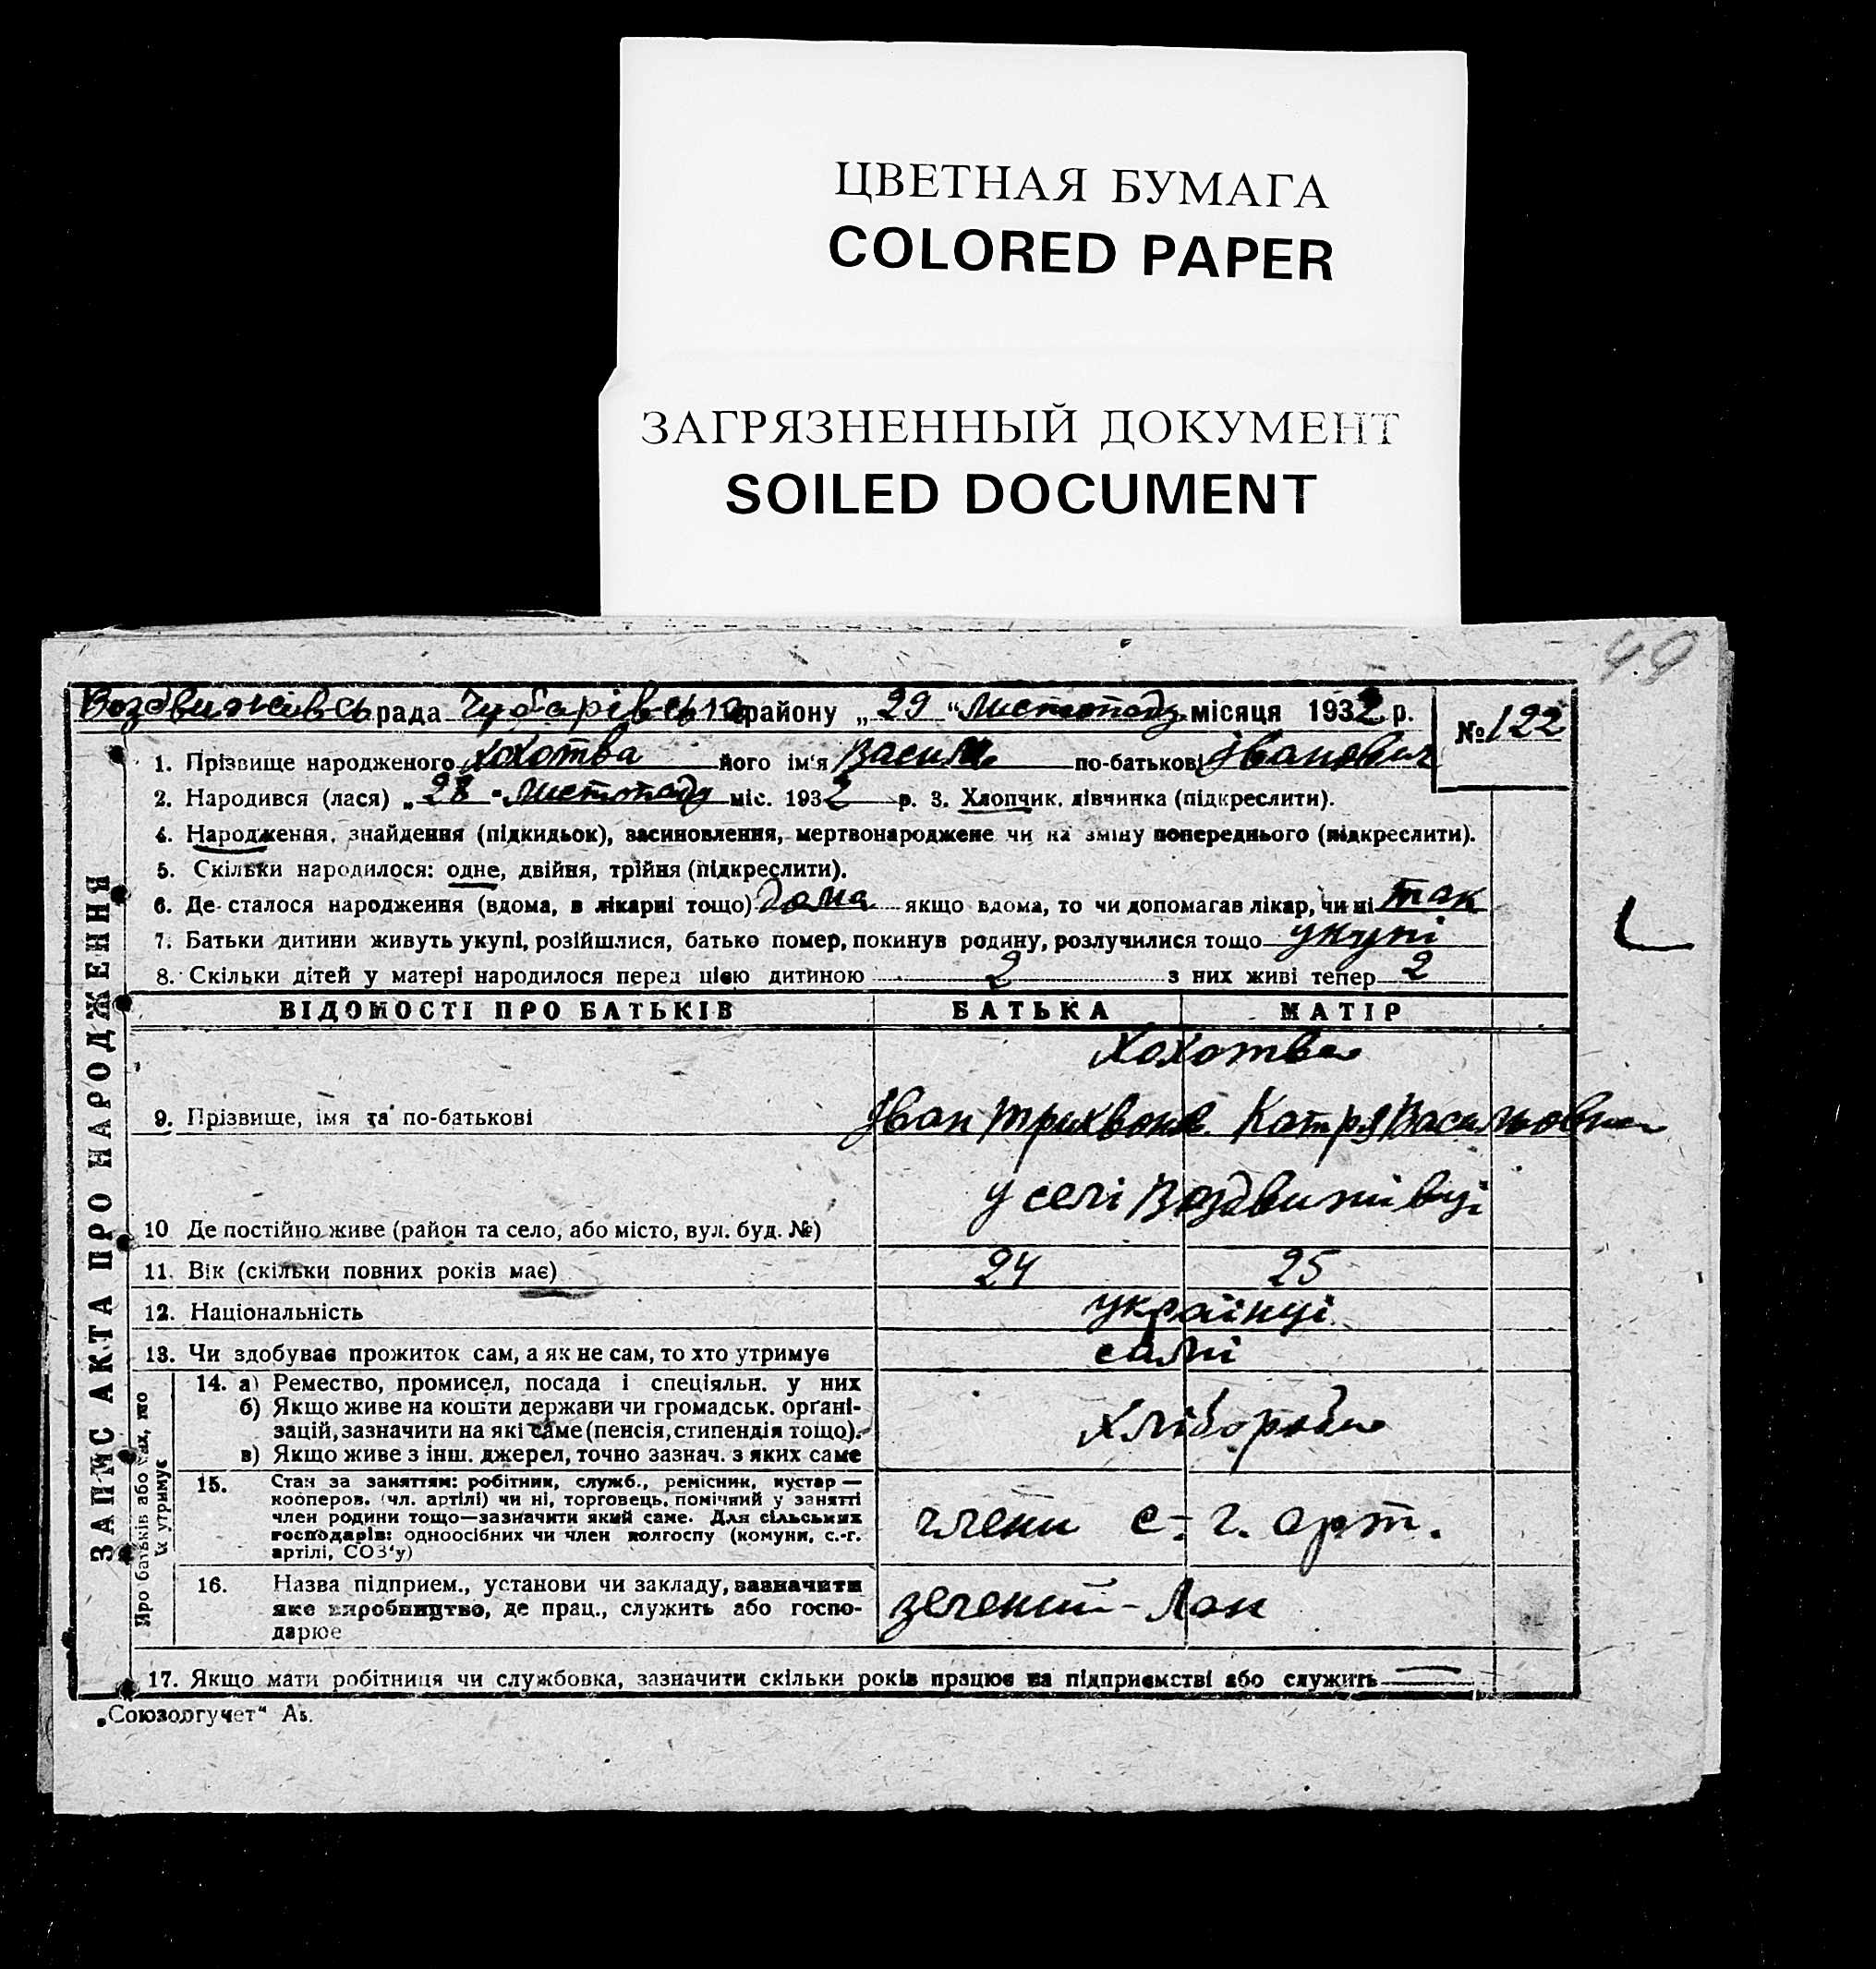 ЦВЕТНАЯ БУМАГА
COLORED PAPER
ЗАГРЯЗНЕННЫЙ ДОКУМЕНТ
SOILED DOCUMENT
49
Воздвижівсь рада Чубарівська району „29“ Листопаду місяця 1932 р.
№ 122
1. Прізвище народженого Хохотва його ім'я Василь по-батькові Іванович
2. Народився (лася) „28“ Листопаду міс. 1932 р. 3. Хлопчик, дівчинка (підкреслити).
4. Народження, знайдення (підкидьок), засиновлення, мертвонароджене чи на зміну попереднього (підкреслити).
5. Скільки народилося: одне, двійня, трійня (підкреслити).
6. Де сталося народження (вдома, в лікарні тощо) дома якщо вдома, то чи допомагав лікар, чи ні так
7. Батьки дитини живуть укупі, розійшлися, батько помер, покинув родину, розлучилися тощо укупі
8. Скільки дітей у матері народилося перед цією дитиною 2 з них живі тепер 2
ЗАПИС АКТА ПРО НАРОДЖЕННЯ
ВІДОМОСТІ ПРО БАТЬКІВ БАТЬКА МАТІР
Хохотва
9. Прізвище, імя та по-батькові Іван Трихвон. Катря Васильовна
10 Де постійно живе (район та село, або місто, вул. буд. №) у селі Воздвижівці
11. Вік (скільки повних років має) 24 25
12. Національність українці
13. Чи здобуває прожиток сам, а як не сам, то хто утримує самі
Про батьків або тих, що
їх утримує
14. а) Ремество, промисел, посада і спеціяльн. у них
б) Якщо живе на кошти держави чи громадськ. орґані-
зацій, зазначити на які саме (пенсія, стипендія тощо).
в) Якщо живе з інш. джерел, точно зазнач. з яких саме
Хлібороби
15. Стан за заняттям: робітник, служб., ремісник, кустар —
кооперов. (чл. артілі) чи ні, торговець, помічний у занятті
член родини тощо—зазначити який саме. Для сільських
господарів: одноосібних чи член колгоспу (комуни, с.-г.
артілі, СОЗ'у)
члени с. г. арт.
16. Назва підприєм., установи чи закладу, зазначити
яке виробництво, де прац., служить або госпо-
дарює
зелений-Лан
17. Якщо мати робітниця чи службовка, зазначити скільки років працює на підприємстві або служить —
„Союзоргучет“ А5.